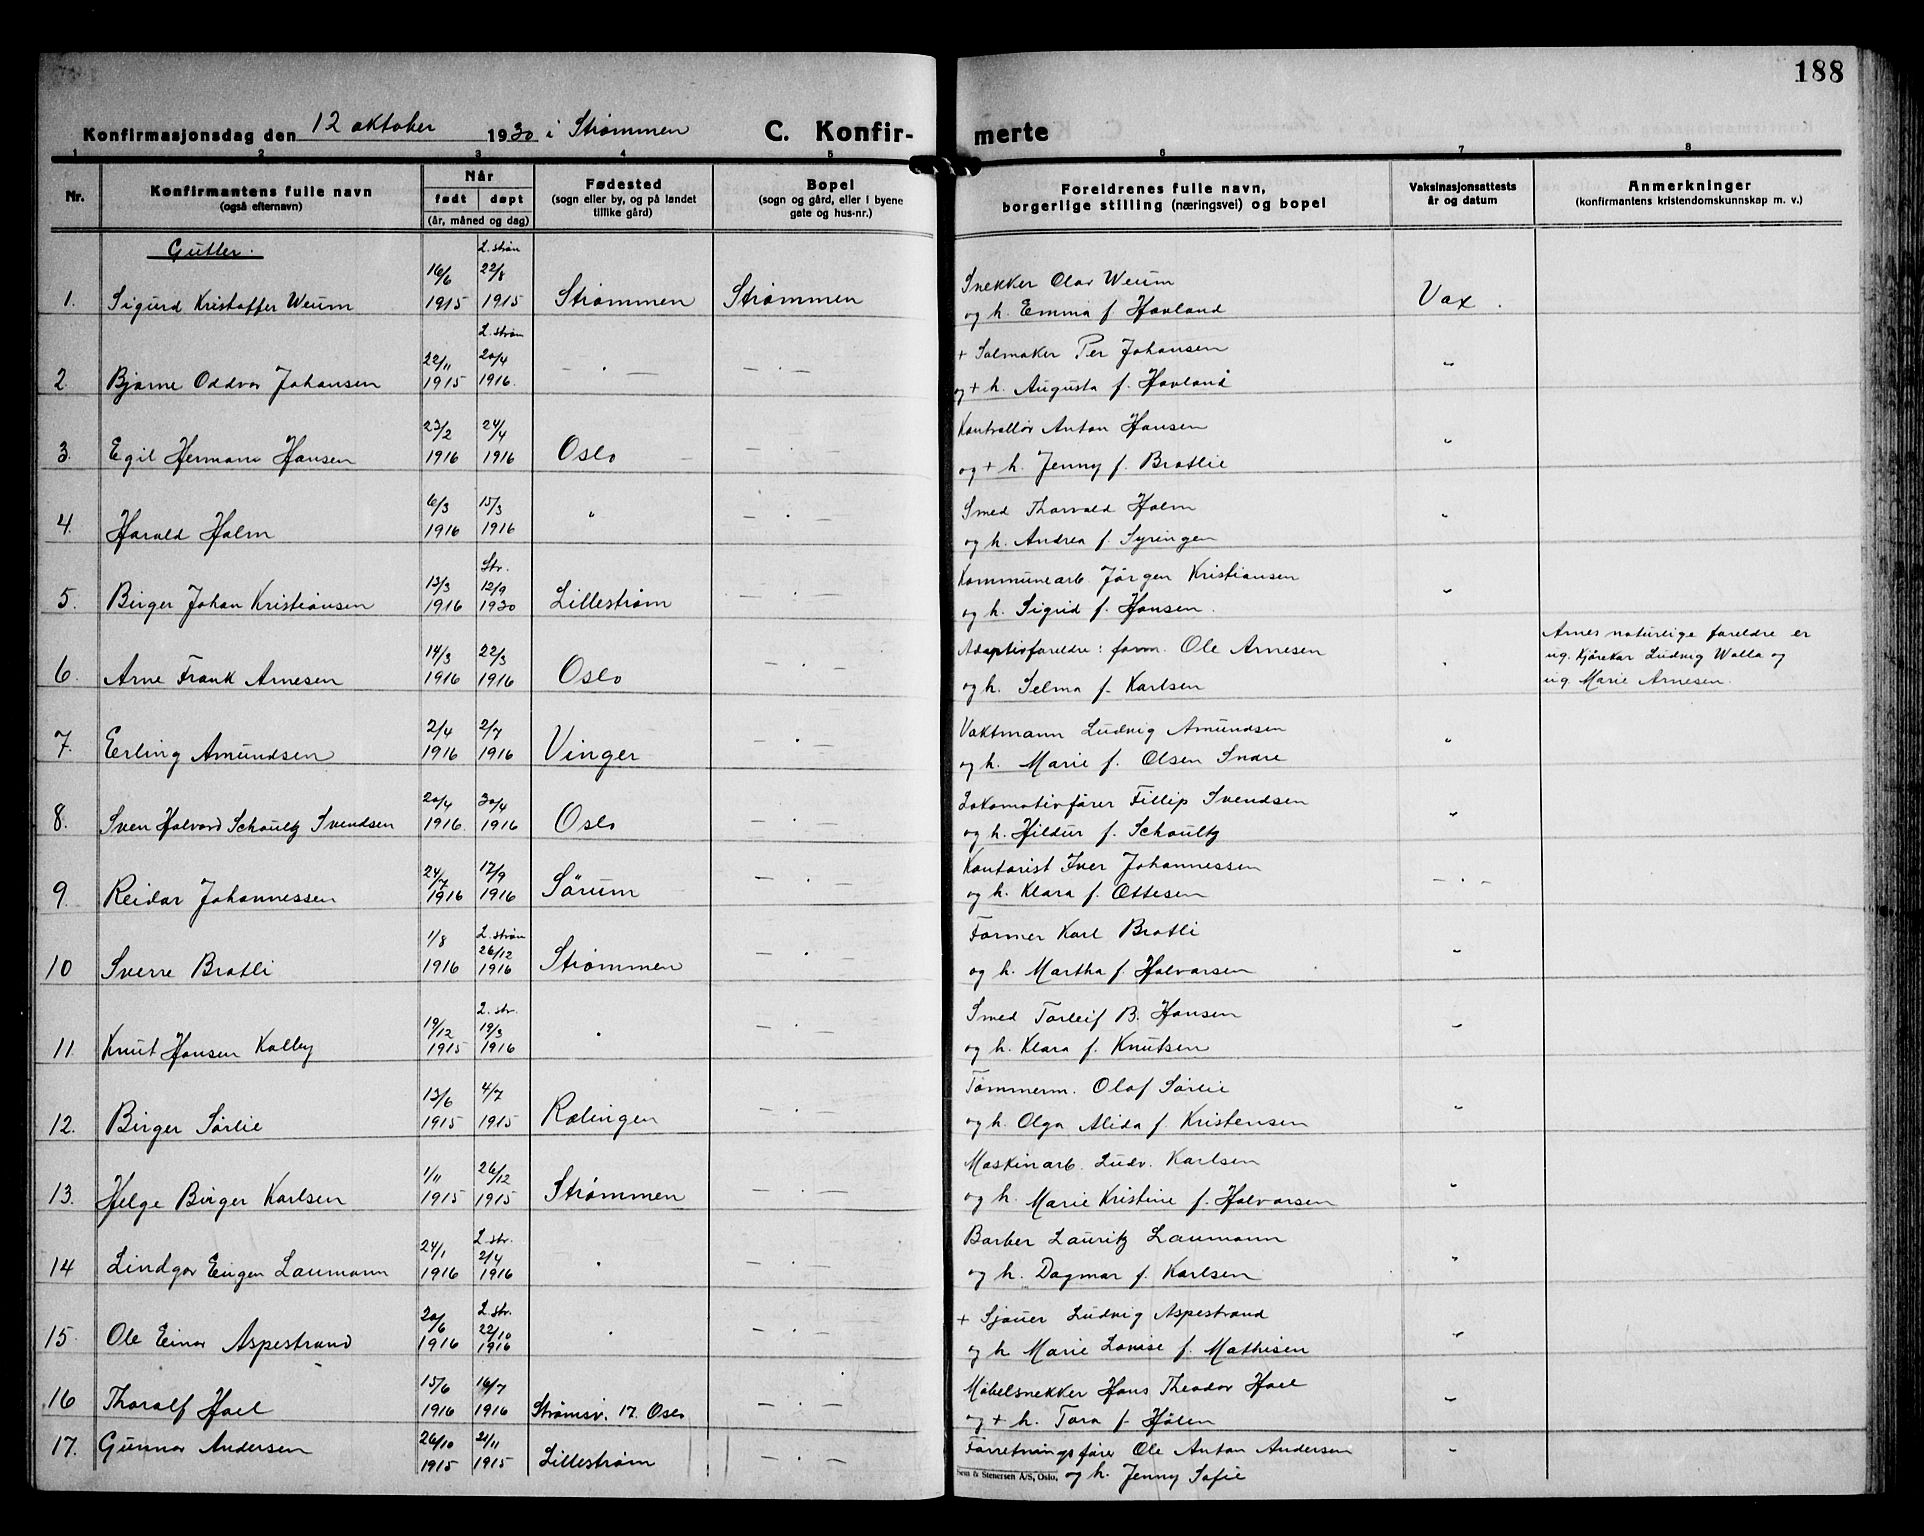 188
Konfirmasjonsdag den 12 oktober 1930 i Strømmen C. Konfir- merte
1 2 3 4 5 6 7 8
Nr. Konfirmantens fulle navn (også efternavn) Når født døpt (år, måned og dag) Fødested (sogn eller by, og på landet tillike gård) Bopel (sogn og gård, eller i byene gate og hus-nr.) Foreldrenes fulle navn, borgerlige stilling (næringsvei) og bopel Vaksinasjonsattests år og datum Anmerkninger (konfirmantens kristendomskunnskap m. v.)
Gutter.
L. strøm
16/6 22/8 Snekker Olav Weum
1. Sigurd Kristoffer Weum 1915 1915 Strømmen Strømmen og h. Emma f. Havland Vax.
L. strøm
22/11 20/4 + Salmaker Per Johansen
2. Bjarne Oddvar Johansen 1915 1916. — " — — " — og + h. Augusta f. Havland "
23/2 24/4 Kontrollør Anton Hansen
3. Egil Hermann Hansen 1916 1916 Oslo — " — og + h. Jenny f. Bratlie "
6/3 15/3 Smed Thorvald Holm
4. Harald Holm 1916 1916 " — " — og h. Andrea f. Syringen "
Str.
13/3 12/9 Kommunearb. Jørgen Kristiansen
5. Birger Johan Kristiansen 1916 1930 Lillestrøm — " — og h. Sigrid f. Hansen. "
Arnes naturlige foreldre er
14/3 22/3 Adoptivforeldre: form. Ole Arnesen ug. Kjørekar Ludvig Walla og
6. Arne Frank Arnesen 1916 1916 Oslo — " — og h. Selma f. Karlsen " ug. Marie Arnesen.
2/4 2/7 Vaktmann Ludvig Amundsen
7. Erling Amundsen 1916 1916 Vinger — " — og h. Marie f. Olsen Snare "
20/4 30/4 Lokomotivfører Fillip Svendsen
8. Sven Halvard Schoultz Svendsen 1916. 1916 Oslo — " — og h. Hildur f. Schoultz "
24/7 17/9 Kontorist Iver Johannessen
9. Reidar Johannessen 1916 1916 Sørum — " — og h. Klara f. Ottesen — " —
L. strøm
1/8 26/12 Former Karl Bratli
10 Sverre Bratli 1916 1916 Strømmen — " — og h. Martha f. Halvorsen "
L. str.
19/12 19/3 Smed Torleif B. Hansen
11. Knut Hansen Kalby 1915 1916 " — " — og h. Klara f. Knutsen "
13/6 4/7 Tømmerm. Olaf Sørlie
12. Birger Sørlie 1915 1915 Rælingen — " — og h. Olga Alida f. Kristensen "
1/11 26/12 Maskinarb. Ludv. Karlsen
13. Helge Birger Karlsen 1915 1915 Strømmen — " — og h. Marie Kristine f. Halvorsen "
L. str.
24/1 2/4 Barber Lauritz Laumann
14 Lindgar Eugen Laumann 1916 1916 " — " — og h. Dagmar f. Karlsen "
L. str.
20/6 22/10 + Sjauer Ludvig Aspestrand
15. Ole Einar Aspestrand 1916 1916 " — " — og h Marie Lovise f. Mathisen "
15/6 16/7 Møbelsnekker Hans Theodor Hoel
16 Tharalf Hoel 1916 1916 Strømsv. 17. Oslo — " — og + h. Tora f. Hølen "
17. Gunnar Andersen 26/10 21/11 Forretningsfører Ole Anton Andersen "
1915 1915 Lillestrøm — " — og h. Jenny Sofie
Sem & Stenersen A/S, Oslo.